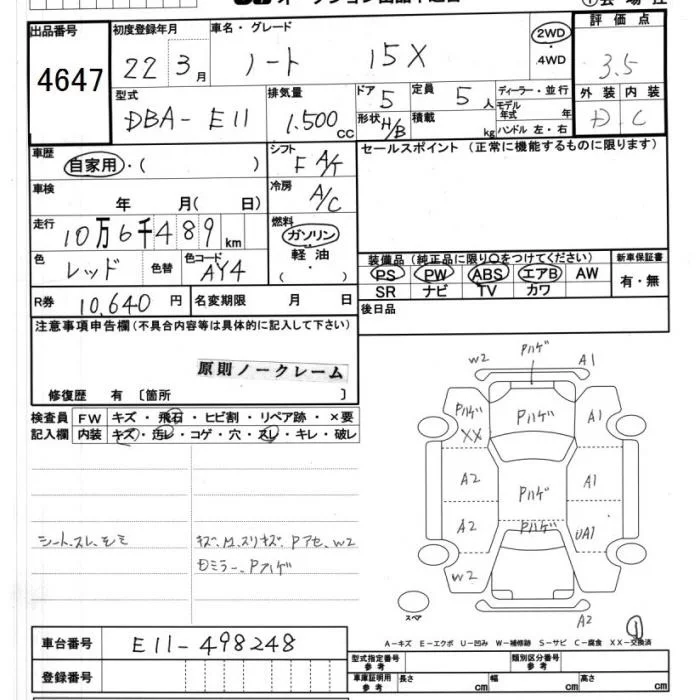 出品番号 初度登録年月 車名・グレード 評価点
4647 22 3月 ノート 15X 2WD・4WD 3.5
外装 内装
D C
型式 排気量 ドア 定員 ディーラー・並行
DBA-E11 1.500cc 5 5人 モデル年式 年
形状 H/B 積載 kg ハンドル 左・右
車歴 シフト セールスポイント(正常に機能するものに限ります)
自家用・( ) F A/T
車検 冷房
年 月( 日) A/C
走行 燃料
10万6千489km ガソリン・軽油・( )
色 色替 色コード 装備品(純正品に限り○をつけてください) 新車保証書
レッド AY4 PS PW ABS エアB AW 有・無
SR ナビ TV カワ
R券 10,640円 名変期限 月 日 後日品
注意事項申告欄(不具合内容等は具体的に記入して下さい)
原則ノークレーム
修復歴 有〔箇所 〕
検査員 FW キズ・飛石・ヒビ割・リペア跡・×要
記入欄 内装 キズ・汚レ・コゲ・穴・スレ・キレ・破レ
W2 Pハゲ A1
Pハゲ XX Pハゲ A1
A2 Pハゲ A1
A2 Pハゲ UA1
W2
A2
シート、スレ、シミ
キズ、M、スリキズ、Pアセ、W2
ミラー、Pハゲ
スペア
①
A-キズ E-エクボ U-凹み W-補修跡 S-サビ C-腐食 XX-交換済
車台番号 E11-498248
登録番号
型式指定番号 参考 類別区分番号 参考
車庫証明用 参考 長さ cm 幅 cm 高さ cm